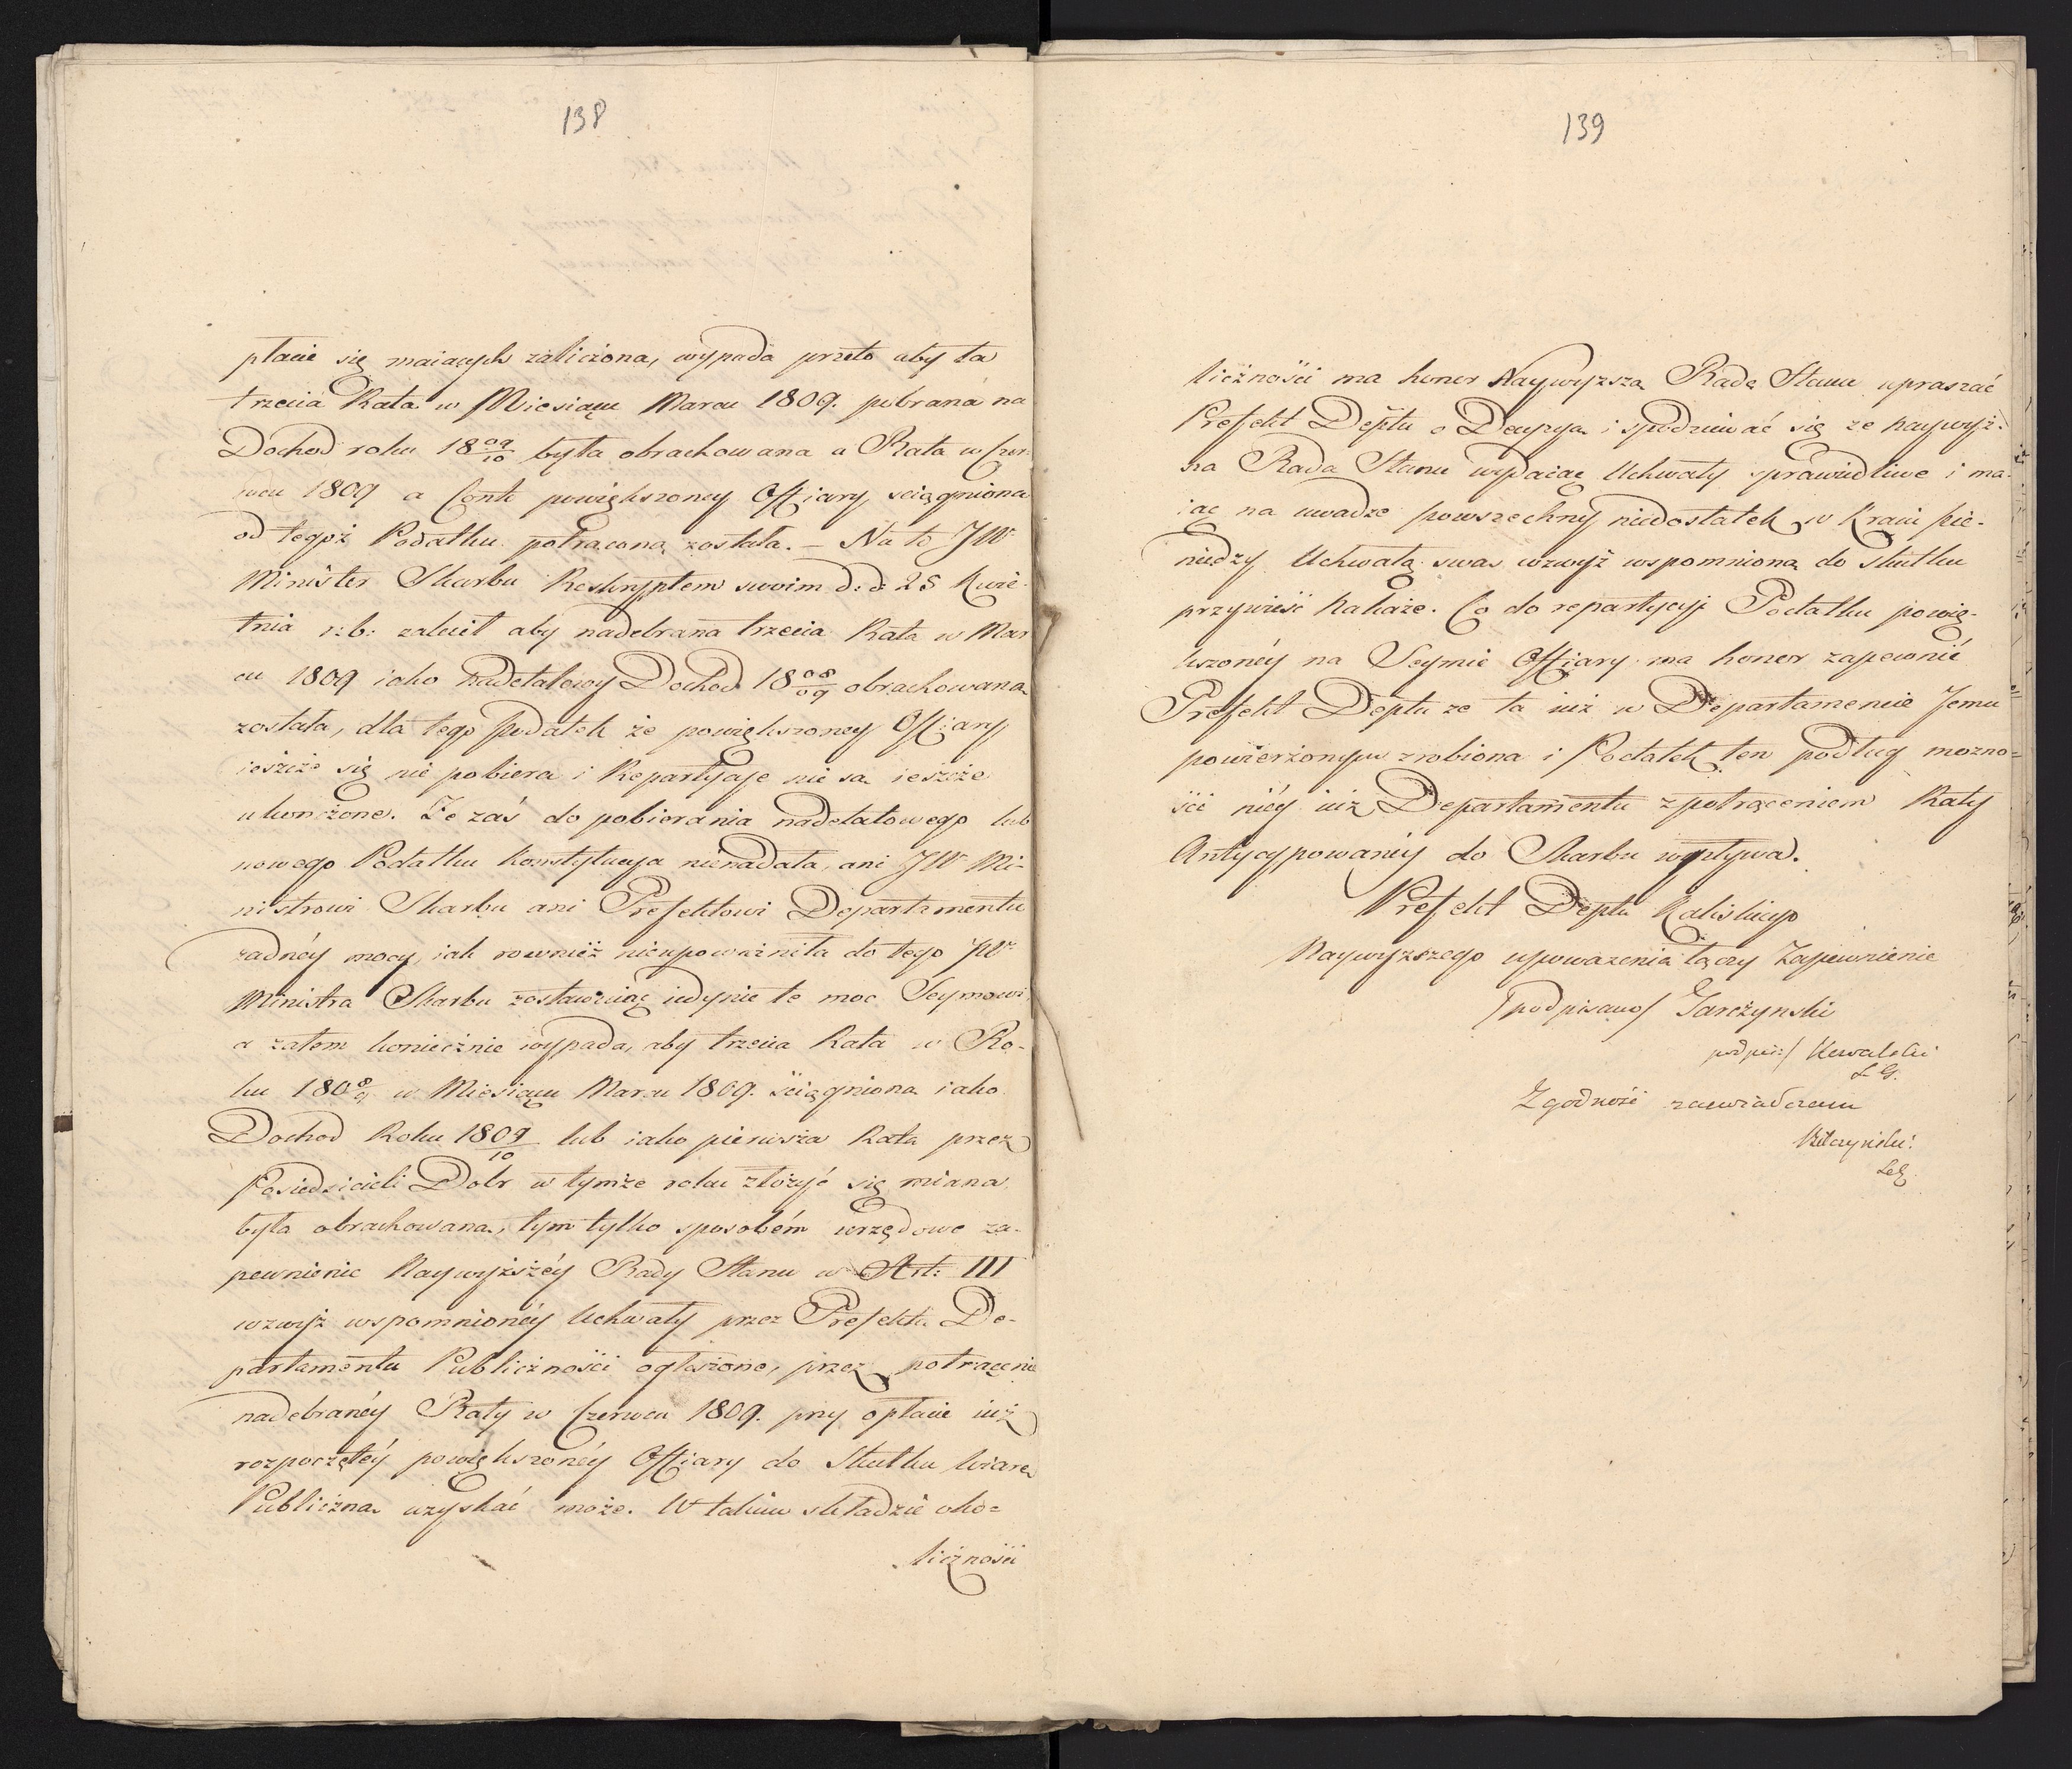 138
płacie się maiących zaliczona, wypada przeto aby ta
trzecia Rata w Miesiącu Marcu 1809. pobrana na
Dochod roku 18 09/10 była obrachowana a Rata w Czer-
wcu 1809 a Conto powiększoney Offiary ściągniona
od tegoż Podatku potrąconą została. – Na to JW
Minister Skarbu Reskryptem swoim d.d. 25 Kwie-
tnia r.b: zalecił aby nadebrana trzecia Rata w Mar
cu 1809 iako nadetatowy Dochod 18 08/09 obrachowana
została, dla tego Podatek że powiększoney Offiary
ieszcze się nie pobiera i Repartycye nie są ieszcze
ukończone. Że zaś do pobierania nadetatowego lub
nowego Podatku Konstytucya nienadała, ani JW Mi-
nistrowi Skarbu ani Prefektowi Departamentu
żadnéy mocy, iak rownież nieupoważniła do tego JW
Ministra Skarbu zostawuiąc iedynie te moc Seymowi,
a zatem koniecznie wypada, aby trzecia Rata w Ro-
ku 180 8/9 w Miesiącu Marcu 1809. ściągniona iako
Dochod Roku 1809/10 lub iako pierwsza Rata przez
Posiedzicieli Dobr w tymże roku złożyć się miana
była obrachowana, tym tylko sposobém urzędowe za-
pewnienie Naywyższéy Rady Stanu w Art: III
wzwyż wspomnionéy Uchwały przez Prefekta De-
partamentu Publiczności ogłoszone, przez potrącenie
nadebranéy Raty w Czerwcu 1809. przy opłacie iuż
rozpoczętéy powiększonéy Offiary do Skutku wiarę
Publiczną uzyskać może. W takim składzie oko=
liczności
139
liczności ma honor Naywyzszą Radę Stanu upraszać
Prefekt Deptu o Decyzyą i spodziewać się ze naywyż-
sza Rada Stanu wydaiąc Uchwały sprawiedliwe i ma-
iąc na uwadze powszechny niedostatek w Kraiu pie-
niędzy Uchwałą swą wzwyż wspomnioną do skutku
przywieść każe. Co do repartycyi Podatku powię-
kszonéy na Seymie Offiary ma honor zapewnić
Prefekt Deptu ze ta iuż w Departamencie Jemu
powierzonym zrobiona i Podatek ten podług możno=
ści niéy iuż Departamentu z potrąceniem Raty
Antycypowaney do Skarbu wpływa.
Prefekt Deptu Kaliskiego
Naywyzszego upowazenia łączy Zapewnienie
/podpisano/ Garczynski
podpis:/ Kowalski
S. G.
Zgodność zaświadczam
Wilczyński